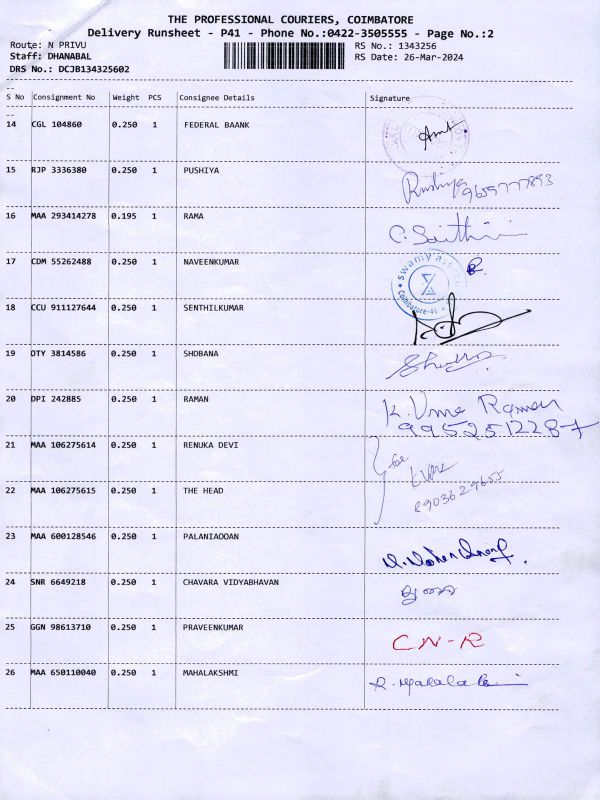 THE PROFESSIONAL COURIERS, COIMBATORE
Delivery Runsheet - P41 - Phone No.:0422-3505555 - Page No.:2
Route: N PRIVU RS No.: 1343256
Staff: DHANABAL RS Date: 26-Mar-2024
DRS No.: DCJB134325602
S No Consignment No Weight PCS Consignee Details Signature
14 CGL 104860 0.250 1 FEDERAL BAANK
15 RJP 3336380 0.250 1 PUSHIYA Pushiya 9659777893
16 MAA 293414278 0.195 1 RAMA
17 CDM 55262488 0.250 1 NAVEENKUMAR swamy Coimbatore-45
18 CCU 911127644 0.250 1 SENTHILKUMAR
19 OTY 3814586 0.250 1 SHDBANA
20 DPI 242885 0.250 1 RAMAN K. Uma Raman
9952512287
21 MAA 106275614 0.250 1 RENUKA DEVI for
22 MAA 106275615 0.250 1 THE HEAD 8903629655
23 MAA 600128546 0.250 1 PALANIAOOAN
24 SNR 6649218 0.250 1 CHAVARA VIDYABHAVAN
25 GGN 98613710 0.250 1 PRAVEENKUMAR CN-R
26 MAA 650110040 0.250 1 MAHALAKSHMI